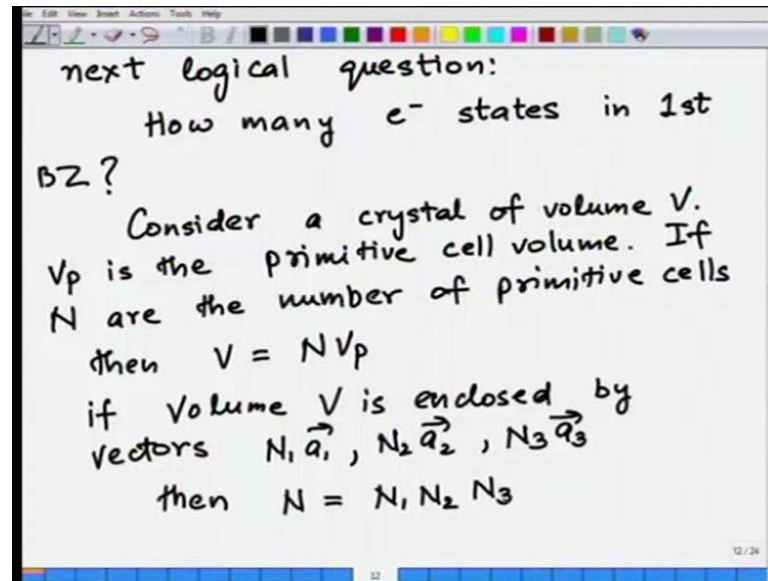 File Edit View Insert Actions Tools Help
next logical question:
How many e⁻ states in 1st
BZ?
Consider a crystal of volume V.
Vp is the primitive cell volume. If
N are the number of primitive cells
then V = NVp
if Volume V is enclosed by
vectors N₁a₁⃗, N₂a₂⃗, N₃a₃⃗
then N = N₁ N₂ N₃
12/24
12